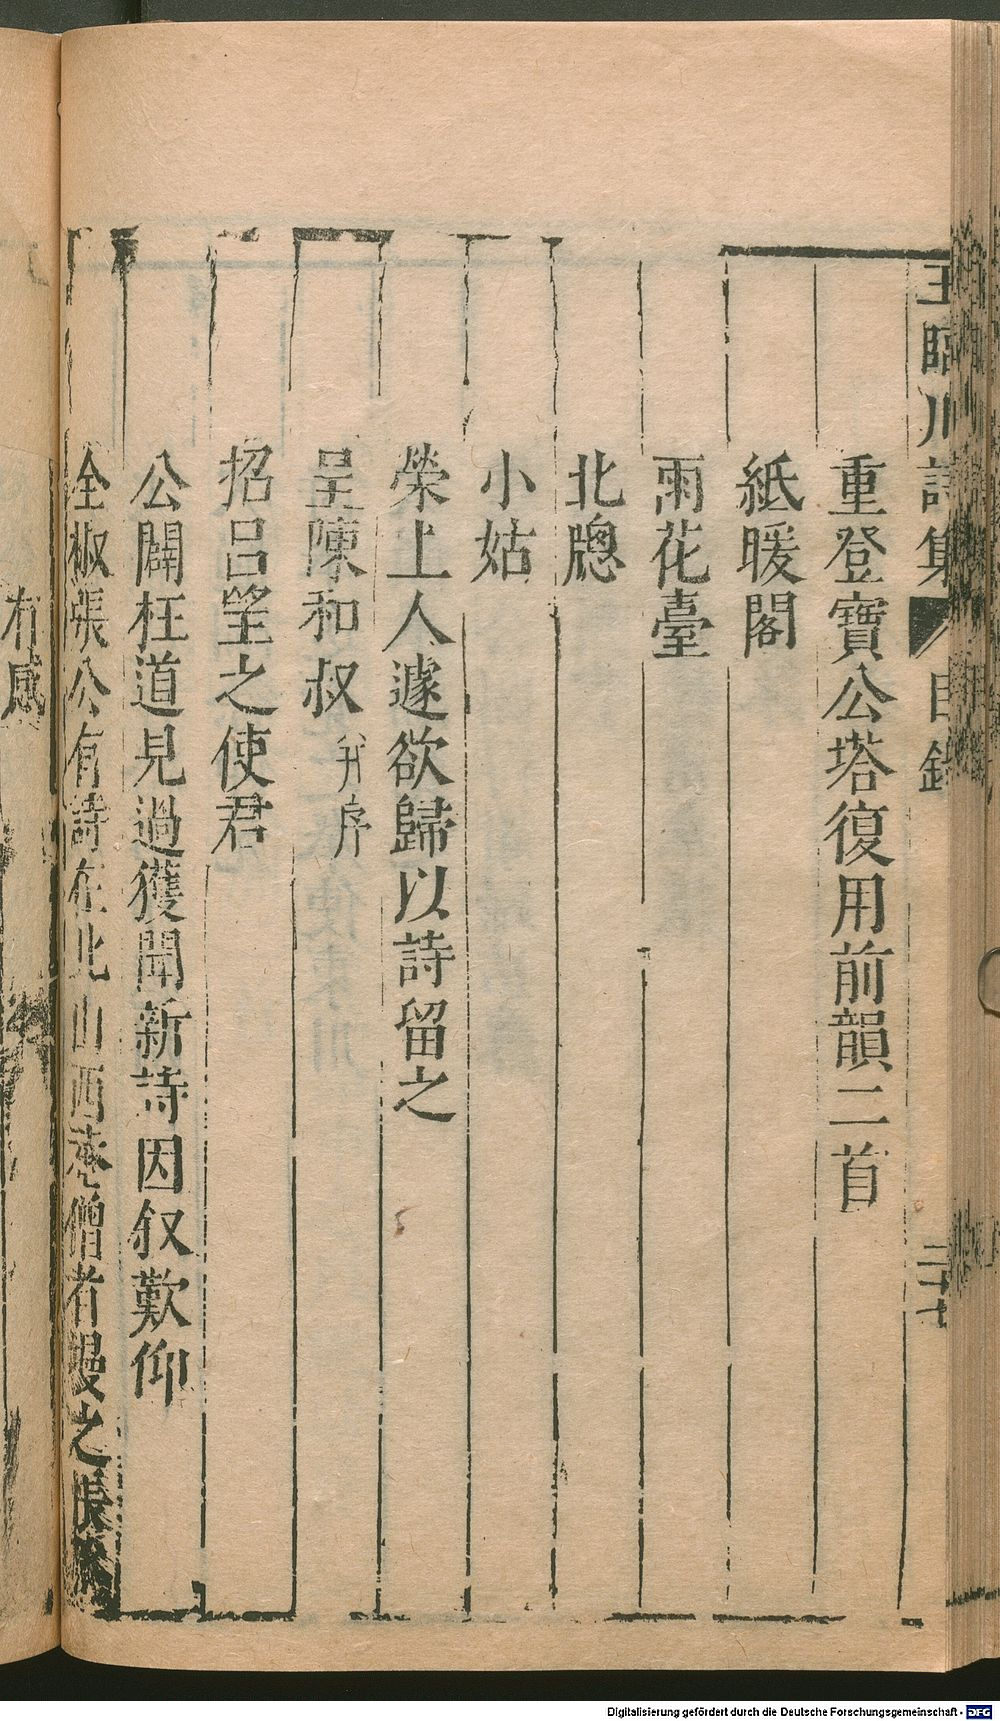 王臨川詩集 目錄 二十七
重登寶公塔復用前韻二首
紙暖閣
雨花臺
北牕
小姑
榮上人遽欲歸以詩留之
呈陳和叔 并序
招呂望之使君
公闢枉道見過獲聞新詩因叙歎仰
全椒張公有詩在北山西菴僧者墁之悵
有感
Digitalisierung gefördert durch die Deutsche Forschungsgemeinschaft - DFG